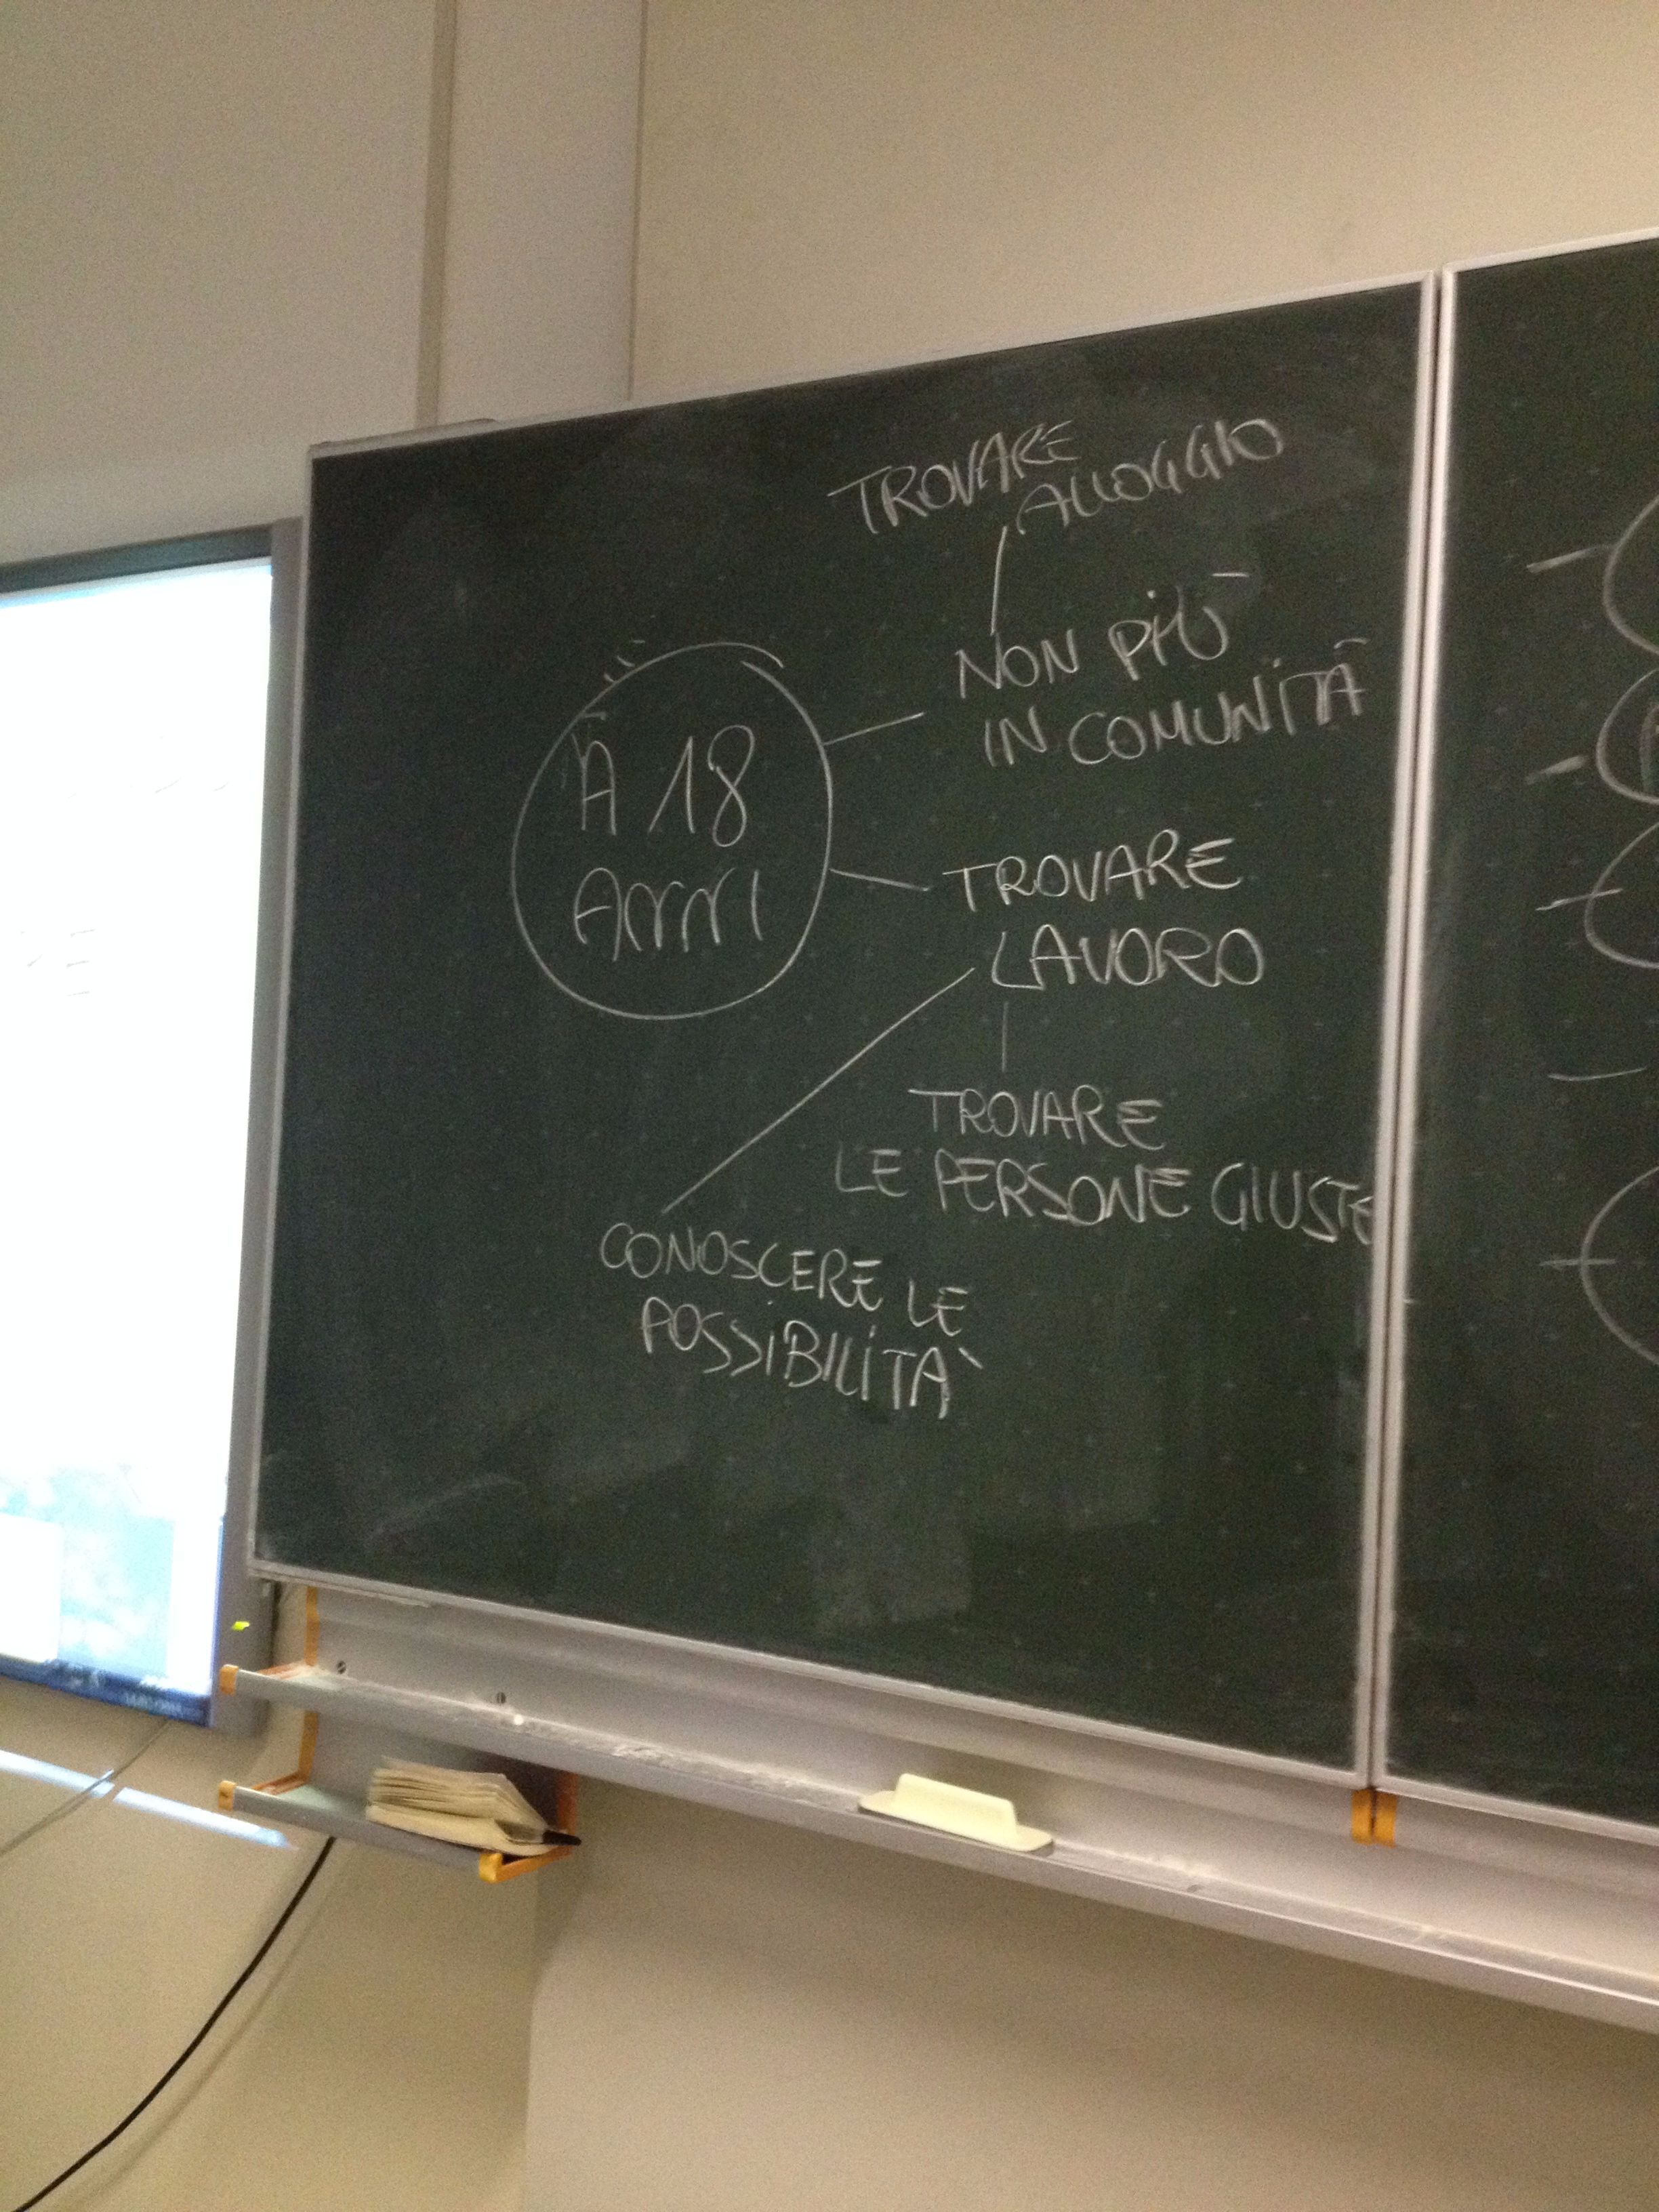 TROVARE
ALLOGGIO
NON PIÙ
IN COMUNITÀ
A 18
Anni
TROVARE
LAVORO
TROVARE
LE PERSONE GIUSTE
CONOSCERE LE
POSSIBILITÀ